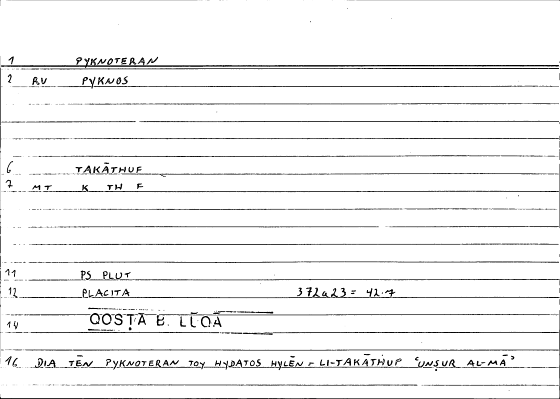 1 PYKNOTERAN
2 RV PYKNOS
6 TAKĀTHUF
7 MT K TH F
11 PS PLUT
12 PLACITA 372a23 = 42.7
14 QOSṬĀ B. LŪQĀ
16 DIA TĒN PYKNOTERAN TOY HYDATOS HYLĒN = LI-TAKĀTHUF ʿUNṢUR AL-MĀʾ